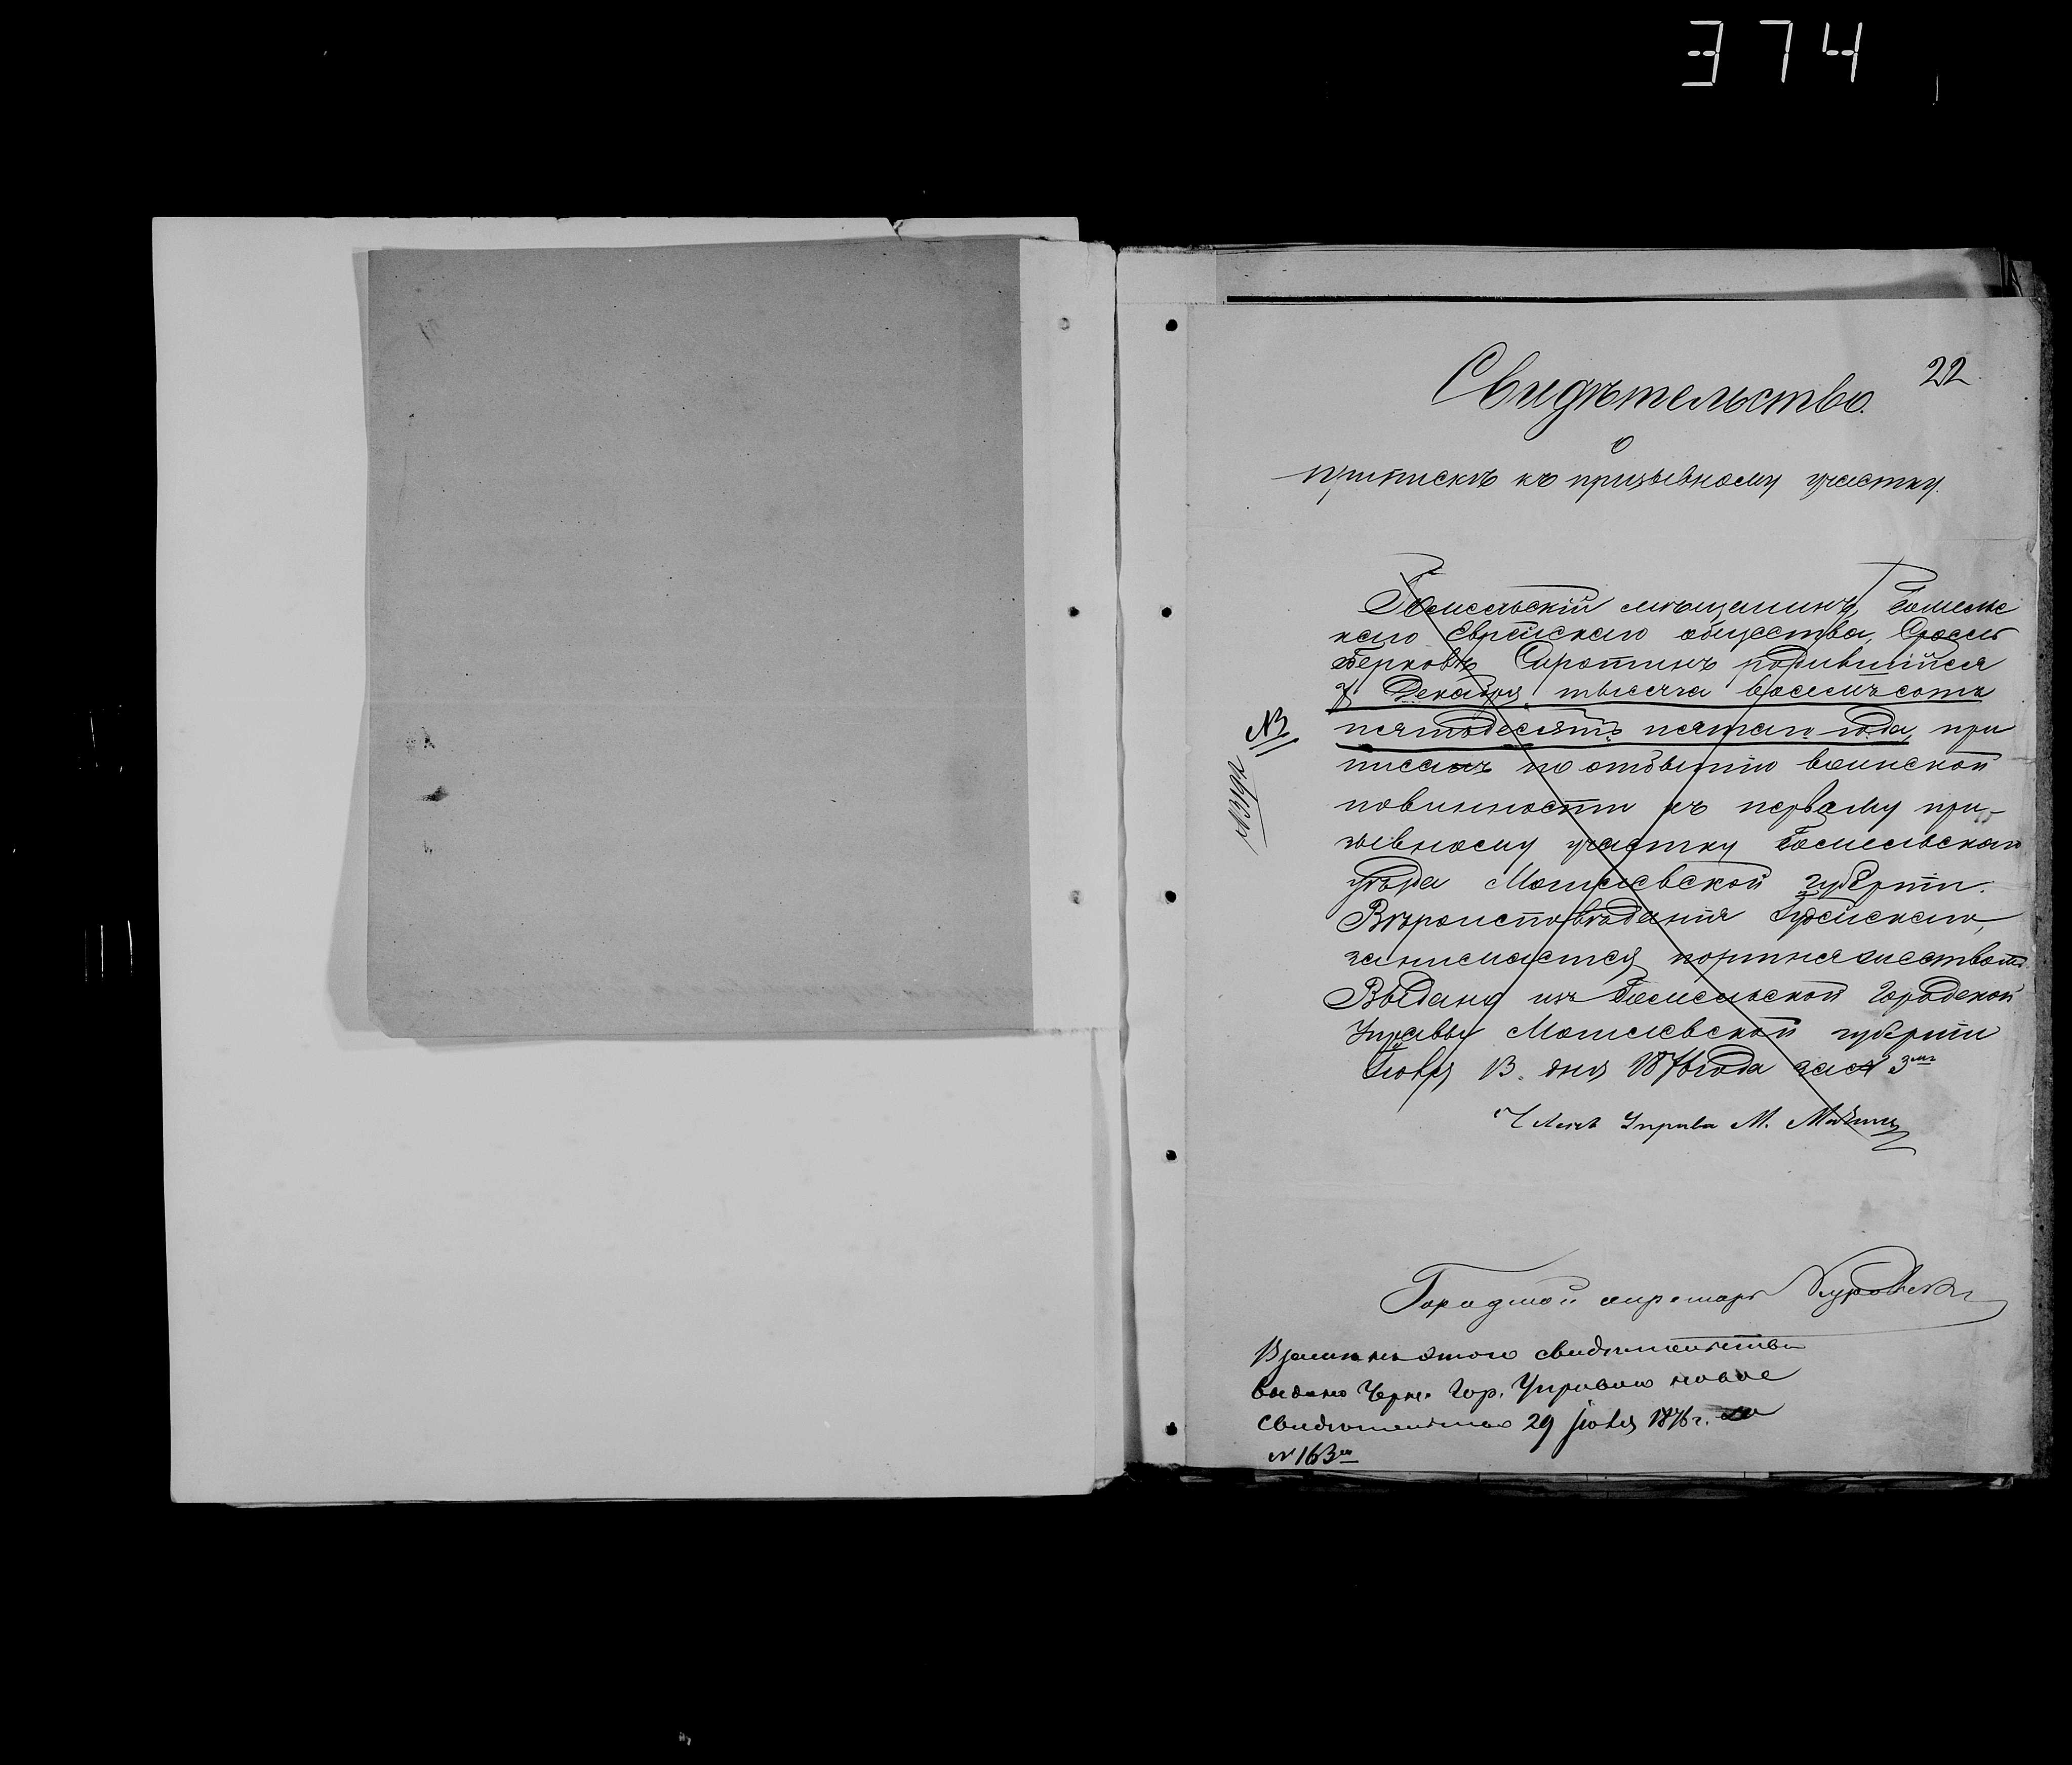 374
22
Свидѣтельство
о
припискѣ къ призывному участку.
Гомельскій мѣщанинъ, Гомельс
каго Еврейскаго общества,
Берковъ Сиротинъ родившійся
7 Декабря тысяча восемьсотъ
пятьдесятъ пятаго года, при
писанъ по отбытію воинской
повинности къ первому при-
зывному участку Гомельскаго
уѣзда Могилевской губерніи.
Вѣроисповѣданія Іудейскаго,
занимается портняжествомъ
Выдано изъ Гомельской Городской
Управы Могилевской губерніи
Іюня 13 дня 1876 года за № 3
Членъ Управы М.
Городской секретарь
Взамѣнъ этого свидѣтельства
выдано Черн. Гор. Управою новое
свидѣтельство 29 1876 г. за
№ 163